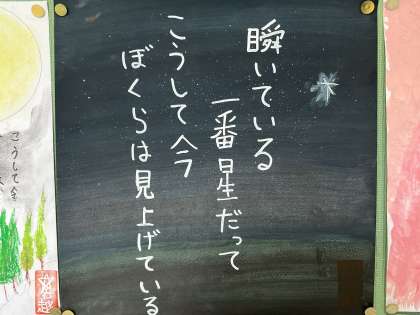 瞬いている
一番星だって
こうして今
ぼくらは見上げている
こうして今